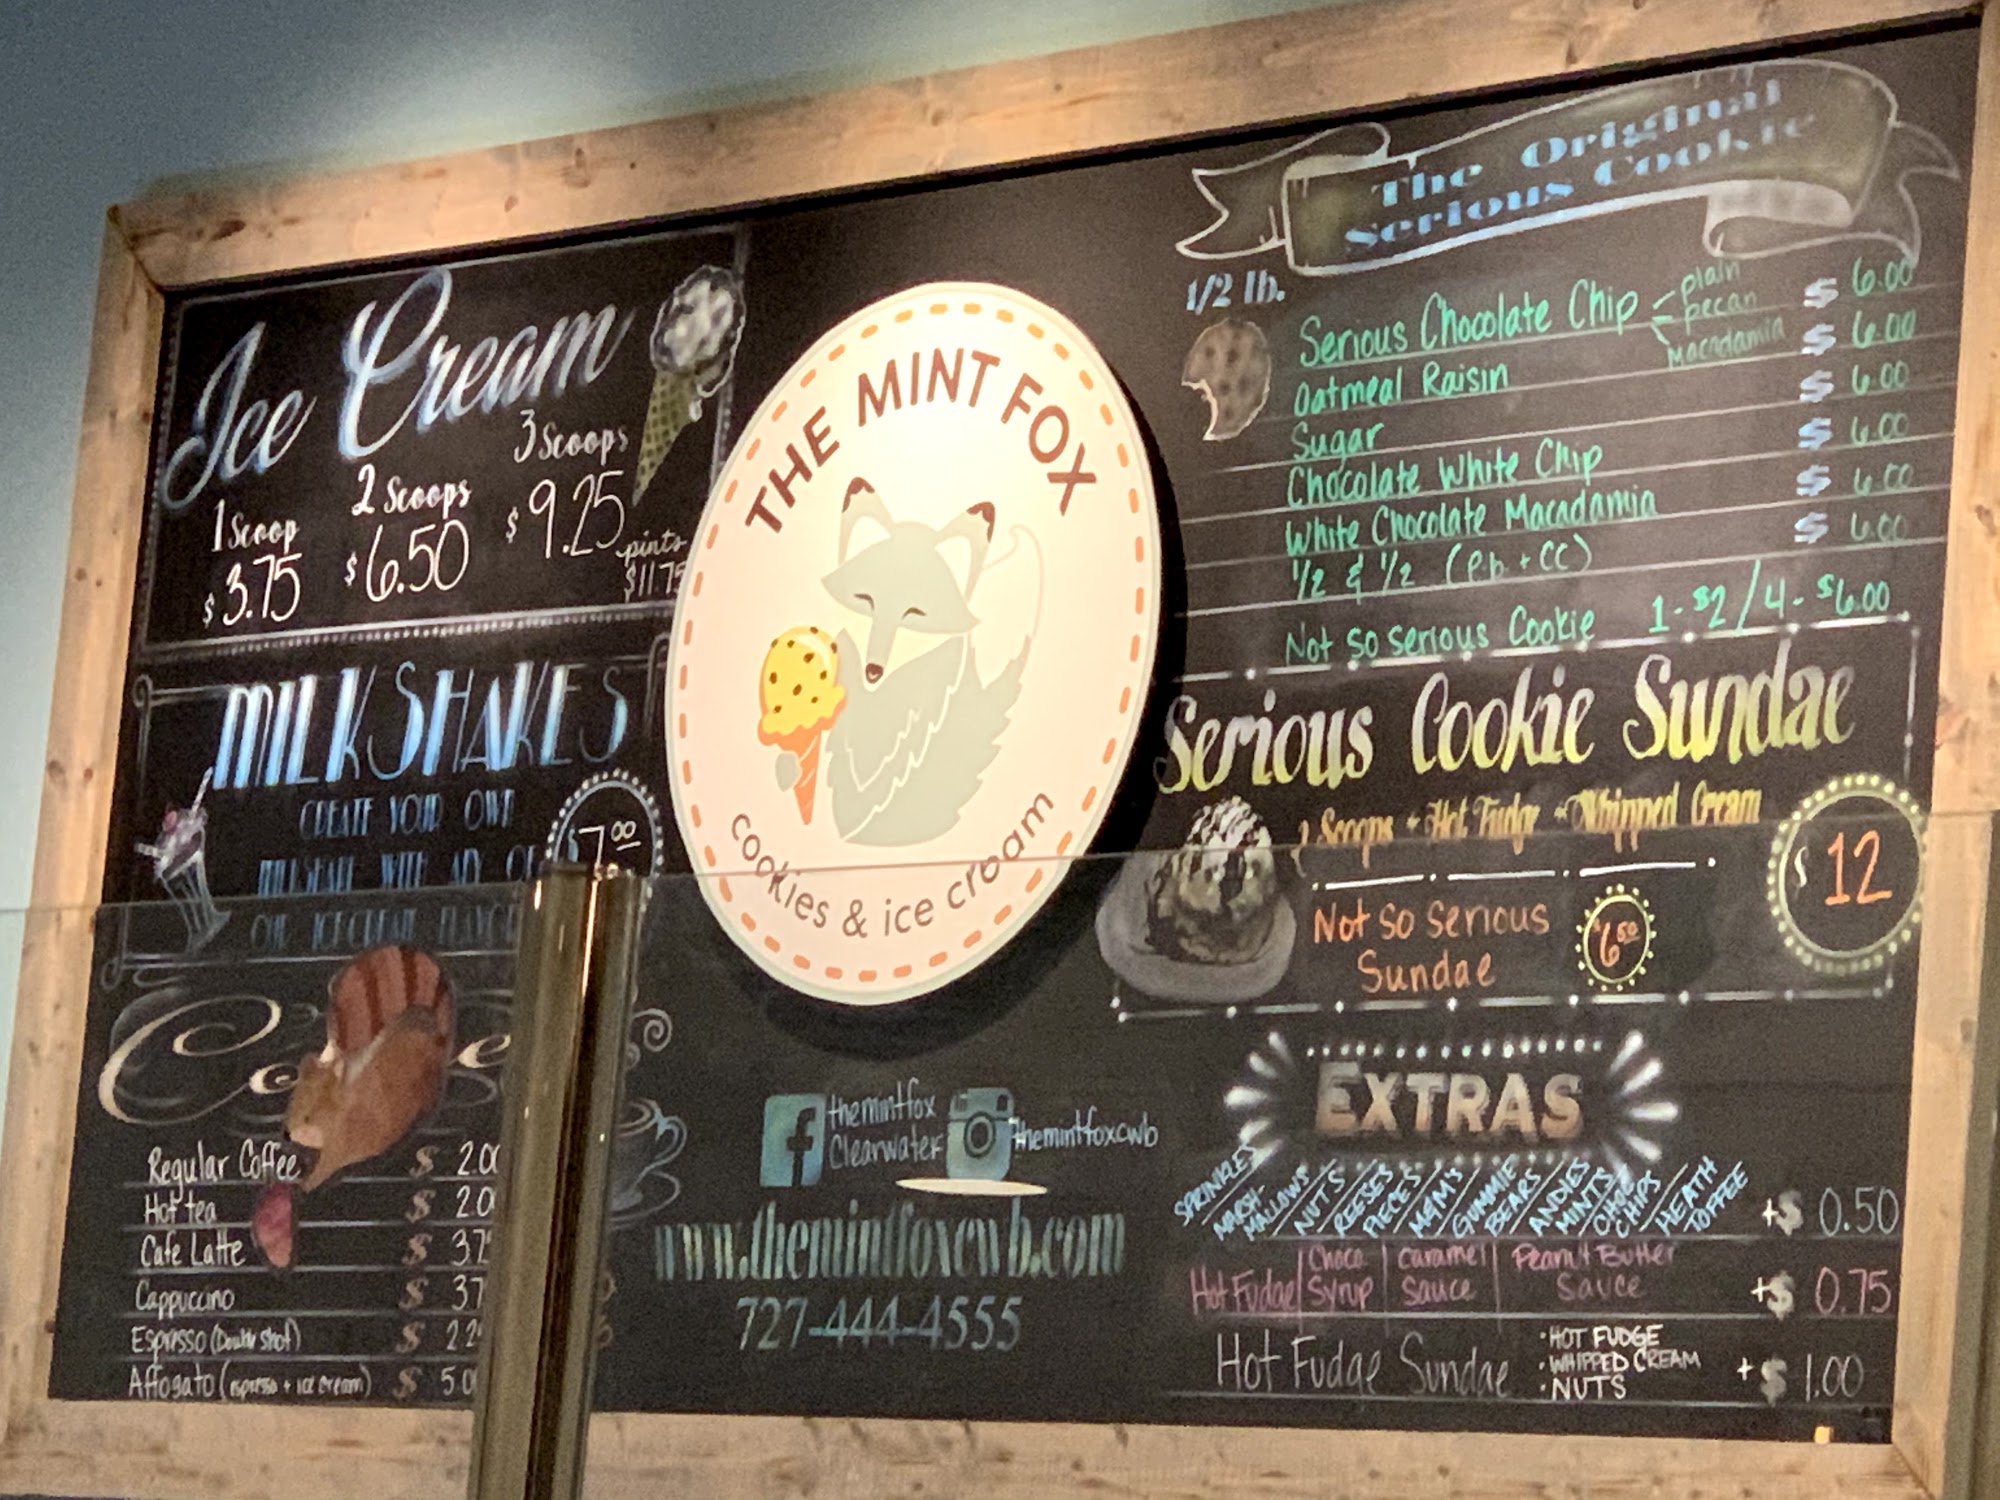 Ice Cream
1 Scoop
$3.75
2 Scoops
$6.50
3 Scoops
$9.25
pints
$11.75
MILKSHAKES
CREATE YOUR OWN
MILKSHAKE WITH ANY OF
OUR ICE CREAM
$7.00
Regular Coffee $ 2.00
Hot tea $ 2.0
Cafe Latte $ 3.7
Cappuccino $ 3.7
Espresso (Double shot) $ 2.2
Affogato (espresso + ice cream) $ 5.0
THE MINT FOX
cookies & ice cream
themintfox
Clearwater
themintfoxcwb
www.themintfoxcwb.com
727-444-4555
The Original
Serious Cookie
1/2 lb.
Serious Chocolate Chip plain pecan Macadamia $ 6.00
Oatmeal Raisin $ 6.00
Sugar $ 6.00
Chocolate White Chip $ 6.00
White Chocolate Macadamia $ 6.00
1/2 & 1/2 (p.b + CC) $ 6.00
Not so serious Cookie 1-$2/4-$6.00
Serious Cookie Sundae
2 Scoops + Hot Fudge + Whipped Cream
$12
Not so serious
Sundae
$6.50
EXTRAS
SPRINKLES/MARSH-MALLOWS/NUTS/REESES PIECES/M&M'S/GUMMIE BEARS/ANDIES MINTS/CHOC CHIPS/HEATH TOFFEE +$ 0.50
Hot Fudge|Choco Syrup|Caramel Sauce|Peanut Butter Sauce +$ 0.75
Hot Fudge Sundae
• HOT FUDGE
• WHIPPED CREAM
• NUTS
+$ 1.00